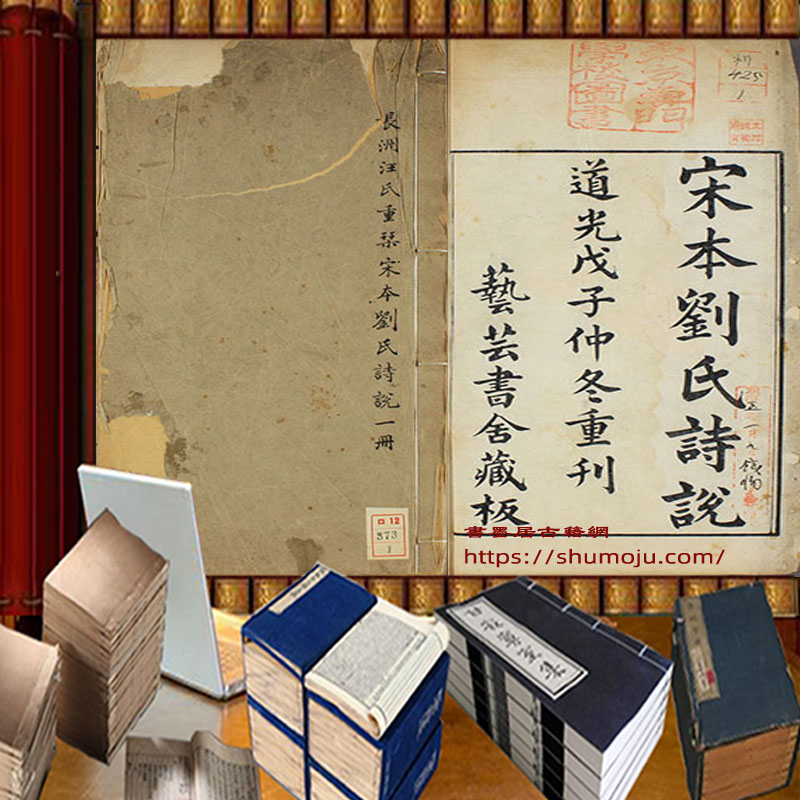 長洲汪氏重栞宋本劉氏詩說一冊
宋本劉氏詩說
道光戊子仲冬重刊
藝芸書舍藏板
口 12
373
1
425
1
書墨居古籍網
https://shumoju.com/